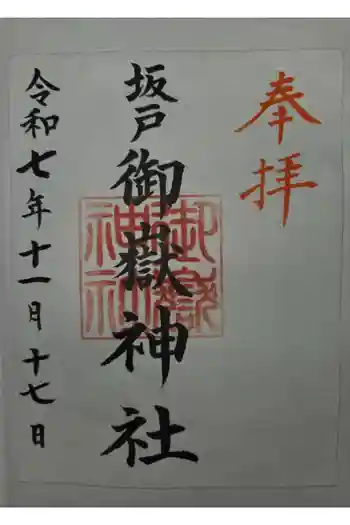 奉拝
坂戸御嶽神社
御嶽神社
令和七年十一月十七日